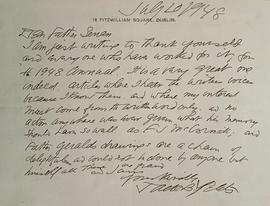 July 20 1948
18 FITZWILLIAM SQUARE, DUBLIN.
Dear Father Senan
I am just writing to thank yourself
and everyone who have worked for it, for
the 1948 Annual. It is a very great one
indeed, articles where I hear the writers voices
because I know them and where my interest
must come from the written word only, and no
actor anywhere was ever given what his memory
should have as well as F J McCormick, and
Father Geralds drawings are a chain of
delightfulness could not be done by anyone but
himself
Yours Kindly
Jack B Yeats